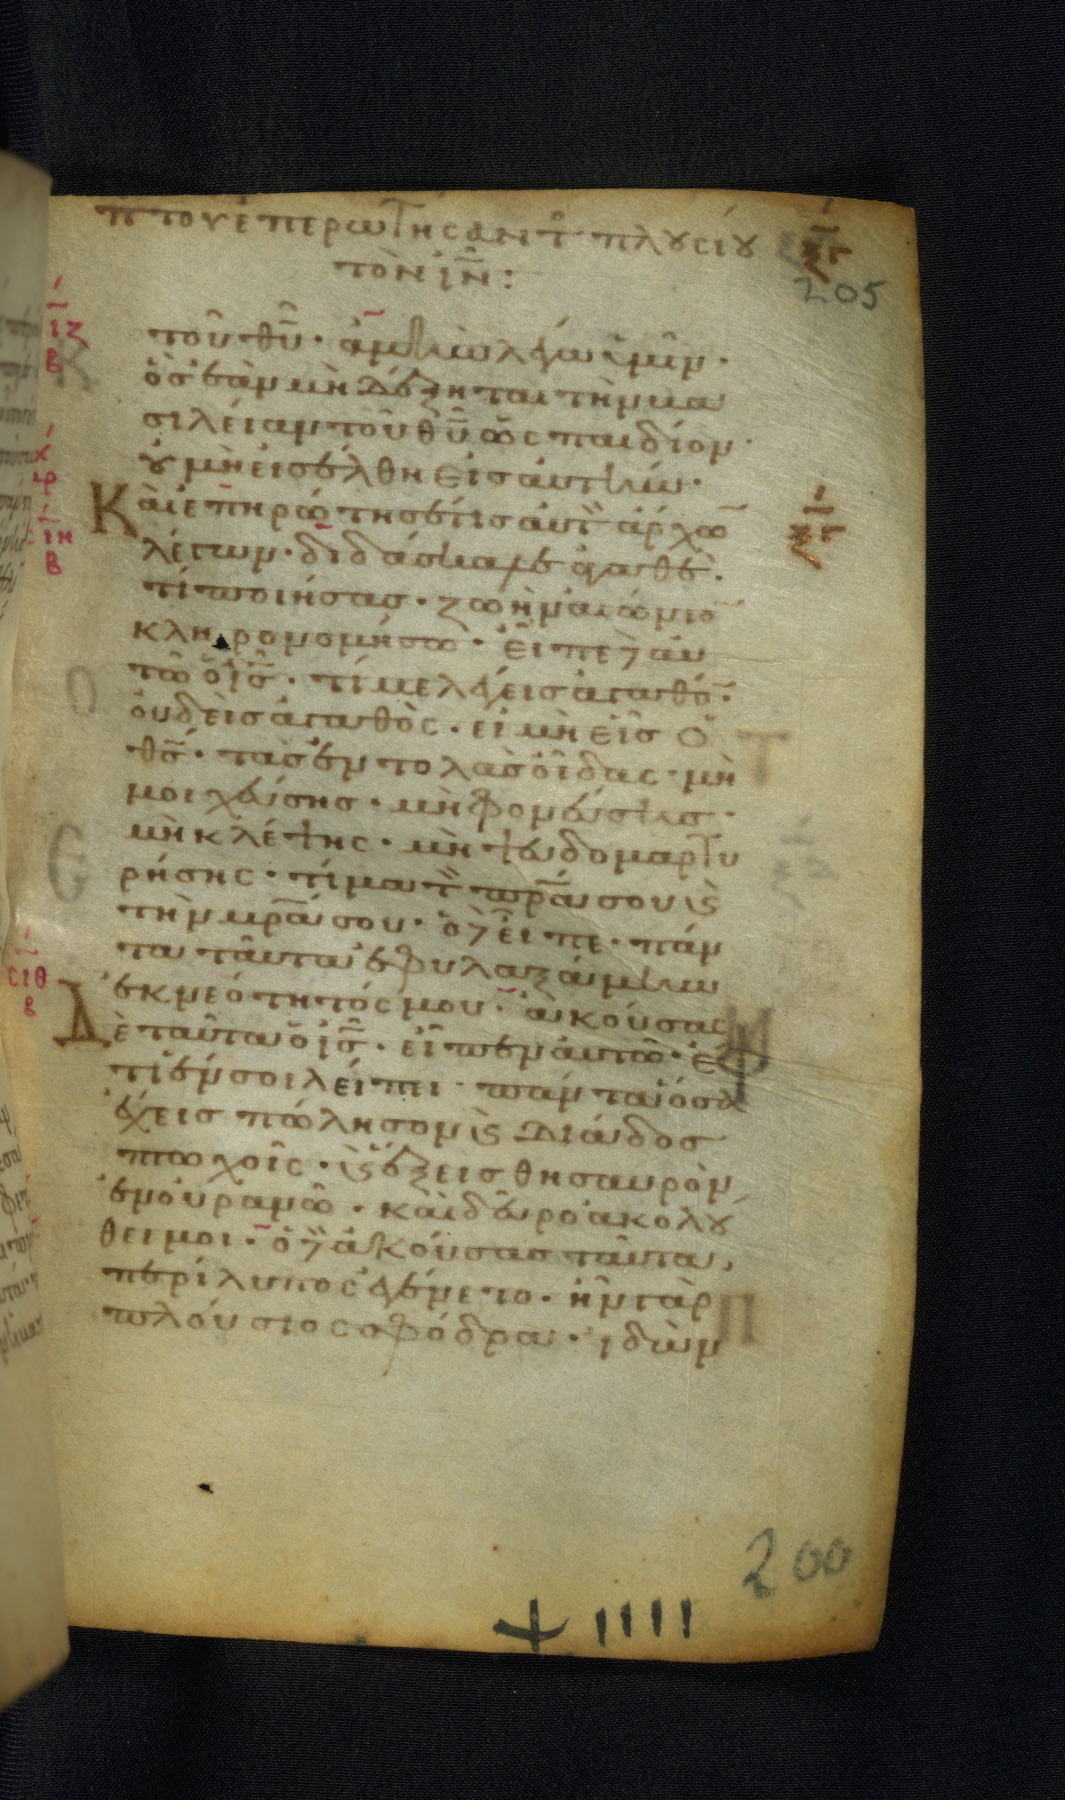 π του ἐπερωτήσαντ πλουσίου
τὸν ἰν̅:
205
τοῦ θυ̅· ἀμὴν λέγω ὑμῖν·
ὃς ἐὰν μὴ δέξηται τὴν βα
σιλείαν τοῦ θυ̅ ὡς παιδίον·
οὐ μὴ εἰσέλθη εἰς αὐτήν·
Καὶ ἐπηρώτησέ τις αὐτ ἄρχω
λέγων· διδάσκαλε ἀγαθέ·
τί ποιήσας· ζωὴν αἰώνιο
κληρονομήσω· εἶπε δ αὐ
τῶ ὁ ισ̅· τί με λέγεις ἀγαθό·
οὐδεὶς ἀγαθὸς· εἰ μὴ εἷς ὁ
θσ̅· τὰς ἐντολὰς οἶδας· μὴ
μοιχεύσης· μὴ φονεύσης·
μὴ κλέψης· μὴ ψευδομαρτυ
ρήσης· τίμα τ πρ̅α σου ϗ
τὴν μρ̅α σου· ὁ δ εἶπε· πάν
τα ταῦτα ἐφυλαξάμην
ἐκ νεότητός μου· ἀκούσας
Δὲ ταῦτα ὁ ισ̅· εἶπεν αὐτῶ· ἔ
τι ἕν σοι λείπει· πάντα ὅσα
ἔχεις πώλησον ϗ διάδος
πτωχοῖς· ϗ ἕξεις θησαυρὸν
ἐν οὐρανῶ· καὶ δεῦρο ἀκολού
θει μοι· ὁ δ ἀκούσας ταῦτα,
περίλυπος ἐγένετο· ἦν γὰρ
πλούσιος σφόδρα· ἰδὼν
200
ιζ
β
ιη
β
σιθ
β